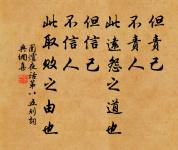 但責己
不責人
此遠怨之道也
但信己
不信人
此取敗之由也
圍爐夜話第八五則